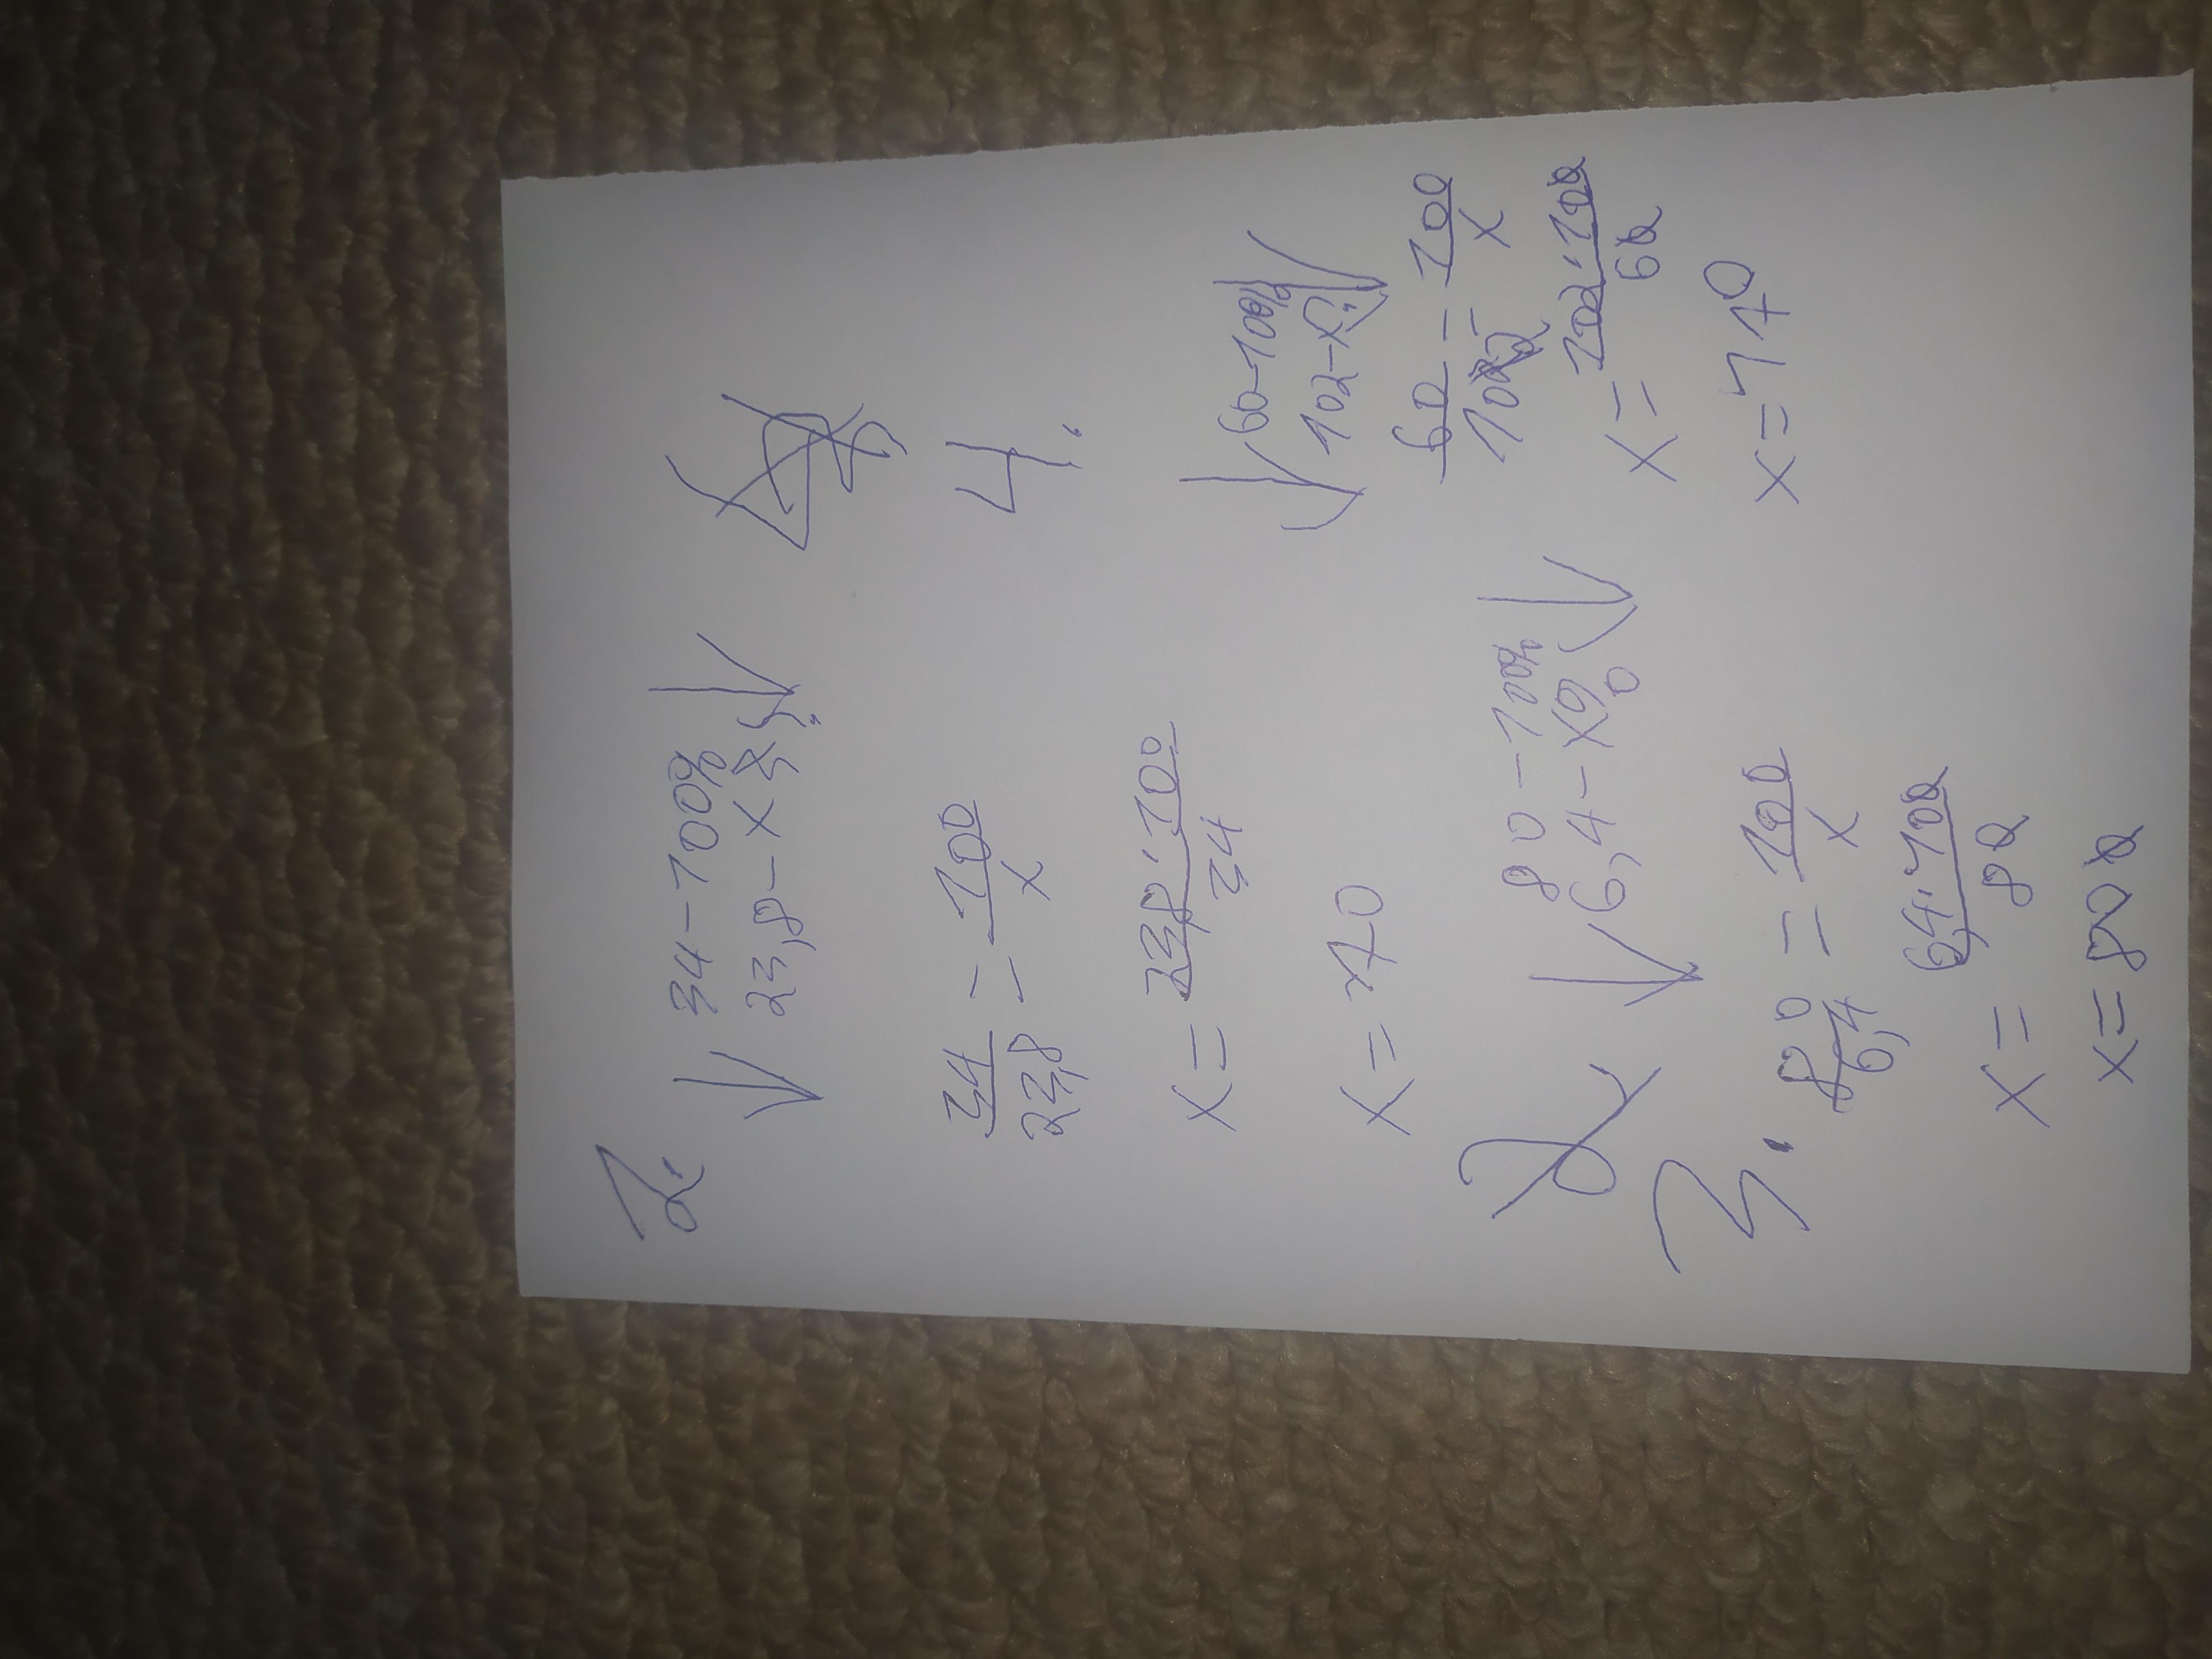 2.
34-100%
23,8-x
34/23,8 = 100/x
x = 23,8·100/34
x = 70
3.
80-100%
6,4-x%
80/6,4 = 100/x
x = 6,4·100/80
x = 80
4.
60-100%
102-x
60/102 = 100/x
x = 102·100/60
x = 170